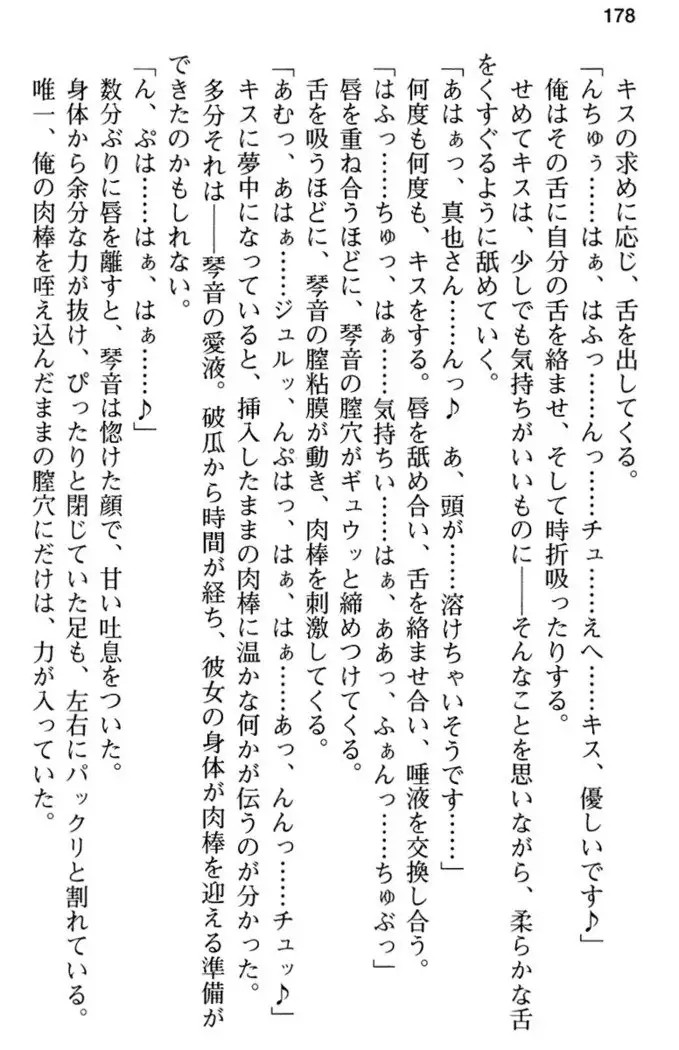 178
キスの求めに応じ、舌を出してくる。
「んちゅぅ……はぁ、はふっ……んっ……チュ……えへ……キス、優しいです♪」
俺はその舌に自分の舌を絡ませ、そして時折吸ったりする。
せめてキスは、少しでも気持ちがいいものに――そんなことを思いながら、柔らかな舌
をくすぐるように舐めていく。
「あはぁっ、真也さん……んっ♪　あ、頭が……溶けちゃいそうです……」
何度も何度も、キスをする。唇を舐め合い、舌を絡ませ合い、唾液を交換し合う。
「はふっ……ちゅっ、はぁ……気持ちい……はぁ、ああっ、ふぁんっ……ちゅぶっ」
唇を重ね合うほどに、琴音の膣穴がギュウッと締めつけてくる。
舌を吸うほどに、琴音の膣粘膜が動き、肉棒を刺激してくる。
「あむっ、あはぁ……ジュルッ、んぷはっ、はぁ、はぁ……あっ、んんっ……チュッ♪」
キスに夢中になっていると、挿入したままの肉棒に温かな何かが伝うのが分かった。
多分それは――琴音の愛液。破瓜から時間が経ち、彼女の身体が肉棒を迎える準備が
できたのかもしれない。
「ん、ぷは……はぁ、はぁ……♪」
数分ぶりに唇を離すと、琴音は惚けた顔で、甘い吐息をついた。
身体から余分な力が抜け、ぴったりと閉じていた足も、左右にパックリと割れている。
唯一、俺の肉棒を咥え込んだままの膣穴にだけは、力が入っていた。